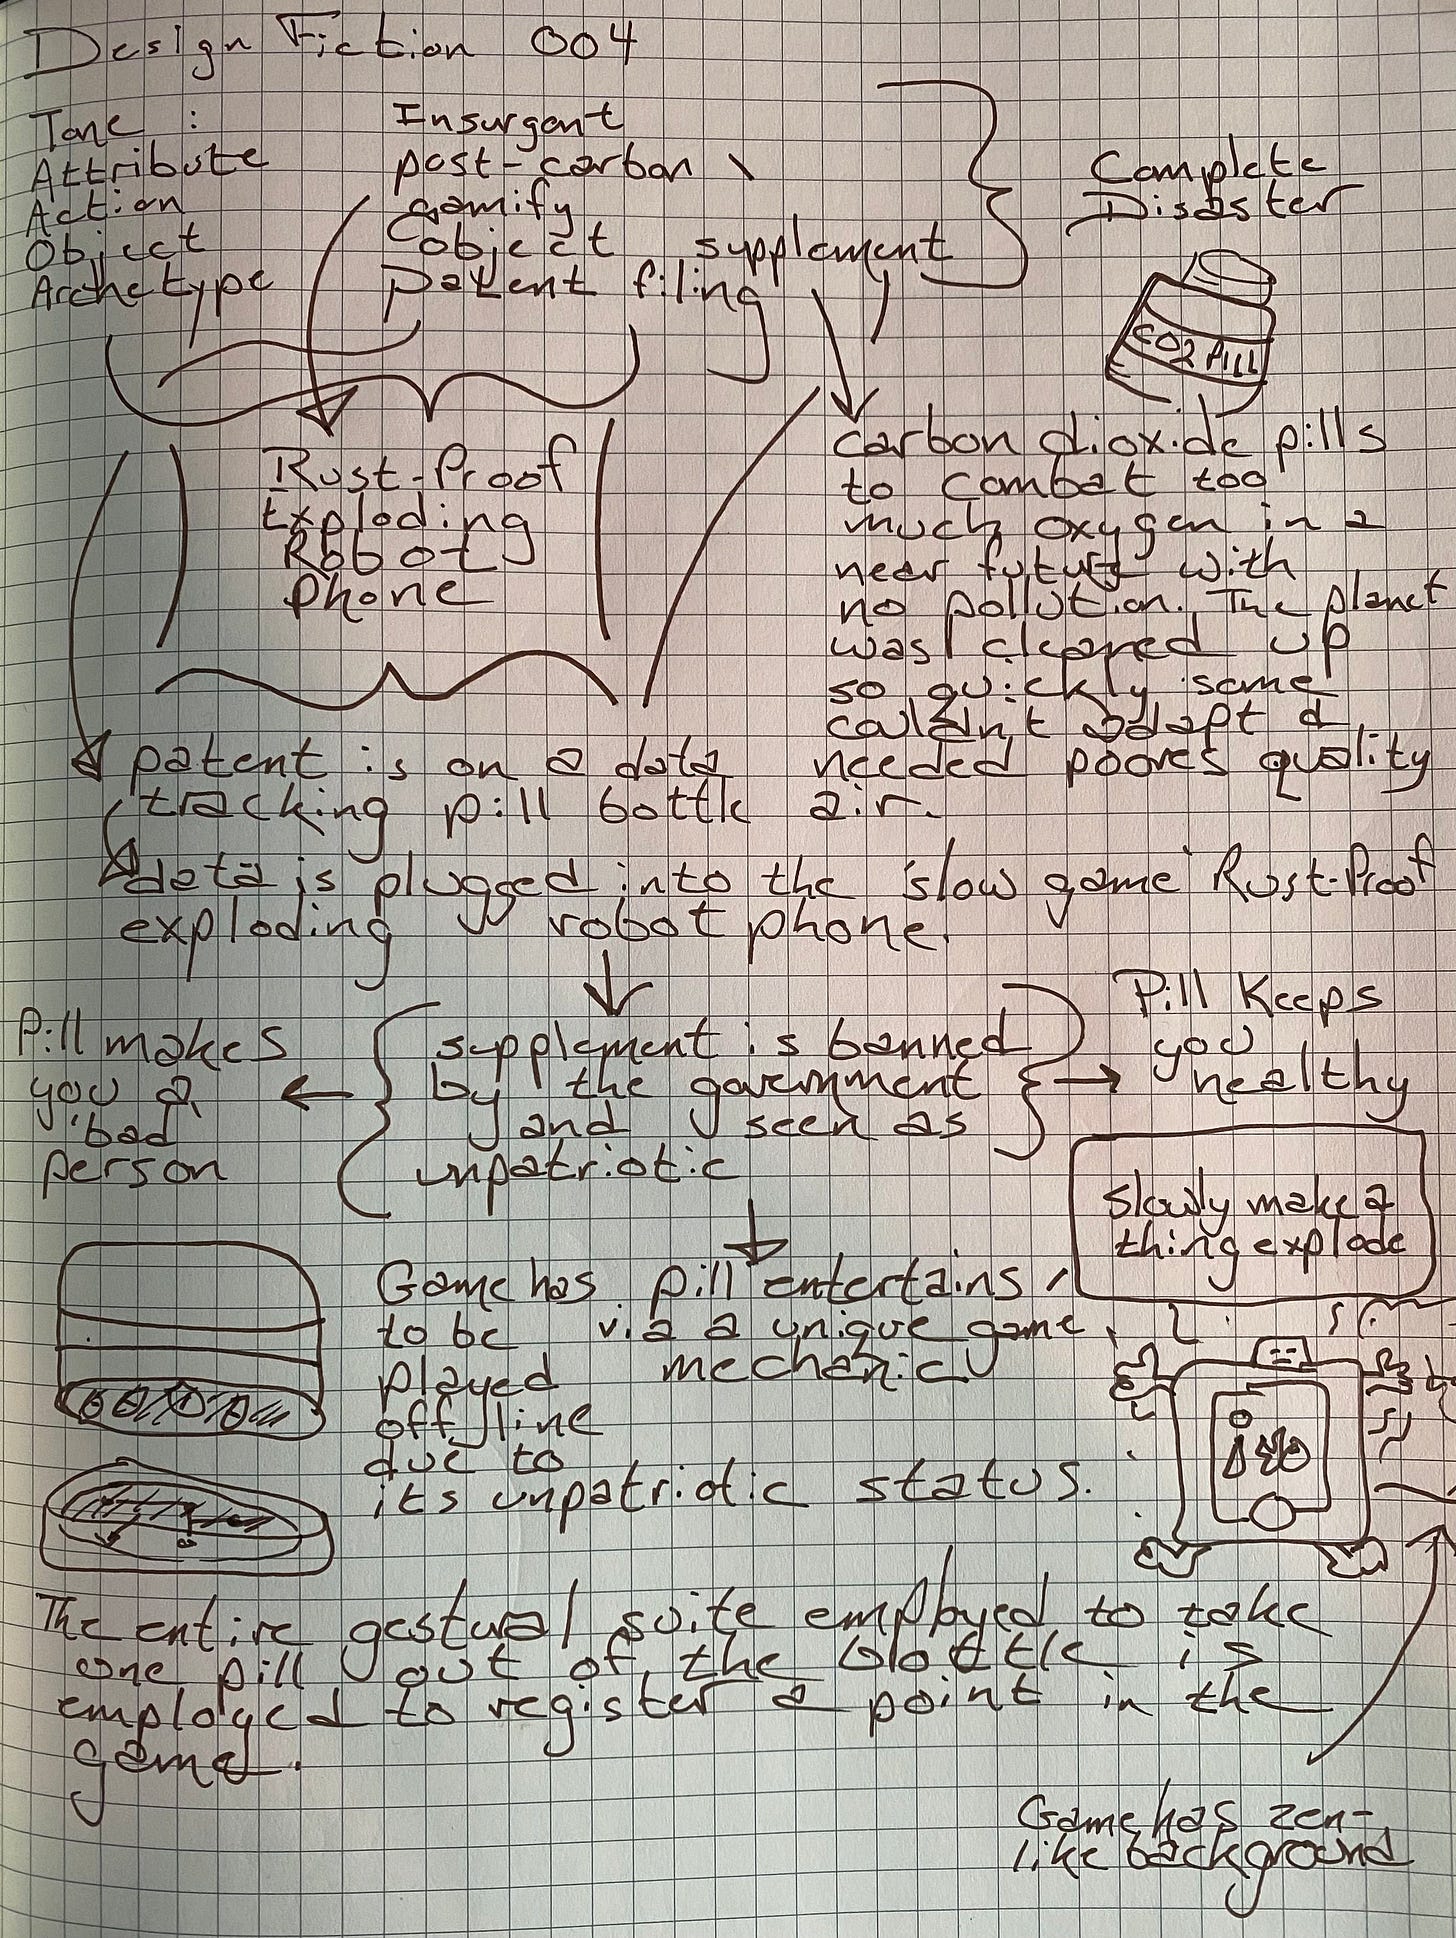 Design Fiction 004
Tone : Insurgent
Attribute post-carbon
Action gamify
Object object supplement
Archetype Patent filing
Complete
Disaster
CO2 PILL
Rust-Proof
Exploding
Robot
Phone
carbon dioxide pills
to combat too
much oxygen in a
near future with
no pollution. The planet
was cleaned up
so quickly some
couldn't adapt &
needed poores quality
air.
patent is on a data
tracking pill bottle
data is plugged into the 'slow game' Rust-Proof
exploding robot phone.
Pill makes
you a
'bad'
person
supplement is banned
by the government
and seen as
unpatriotic
Pill Keeps
you
healthy
Slowly make a
thing explode
Game has
to be
played
offline
due to
its unpatriotic status.
pill entertains
via a unique game
mechanic
The entire gestural suite employed to take
one pill out of the blottle is
employed to register a point in the
game.
Game has zen-
like background